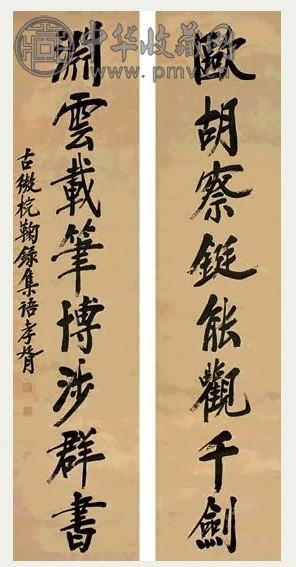 中华收藏网
歐胡察鋌能觀千劍
淵雲載筆博涉群書
古微梡鞠錄集語孝胥